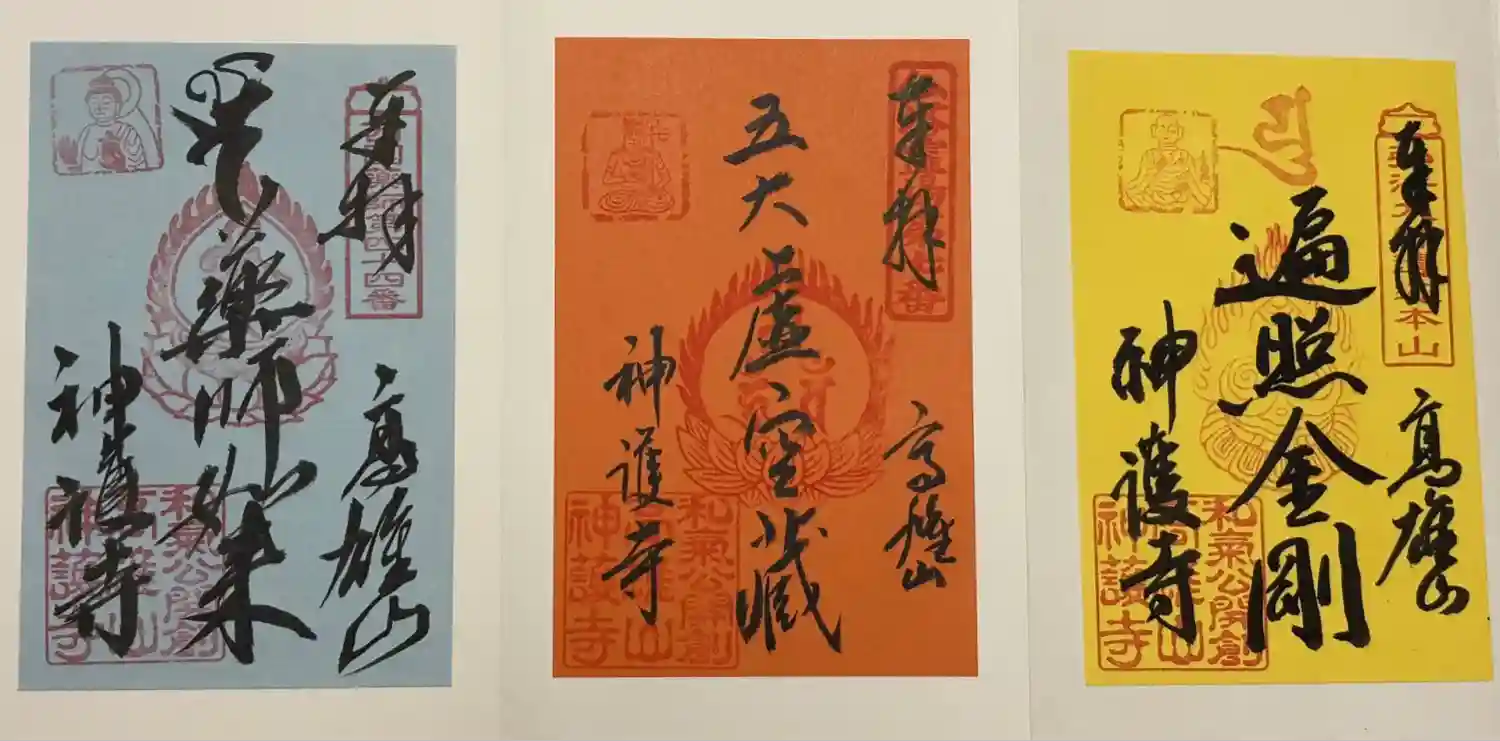 奉拝
第四十四番
高雄山
薬師如来
神護寺
和氣公開創
高雄山
神護寺
奉拝
高雄山
五大虚空藏
神護寺
和氣公開創
高雄山
神護寺
奉拝
本山
高雄山
遍照金剛
神護寺
和氣公開創
高雄山
神護寺